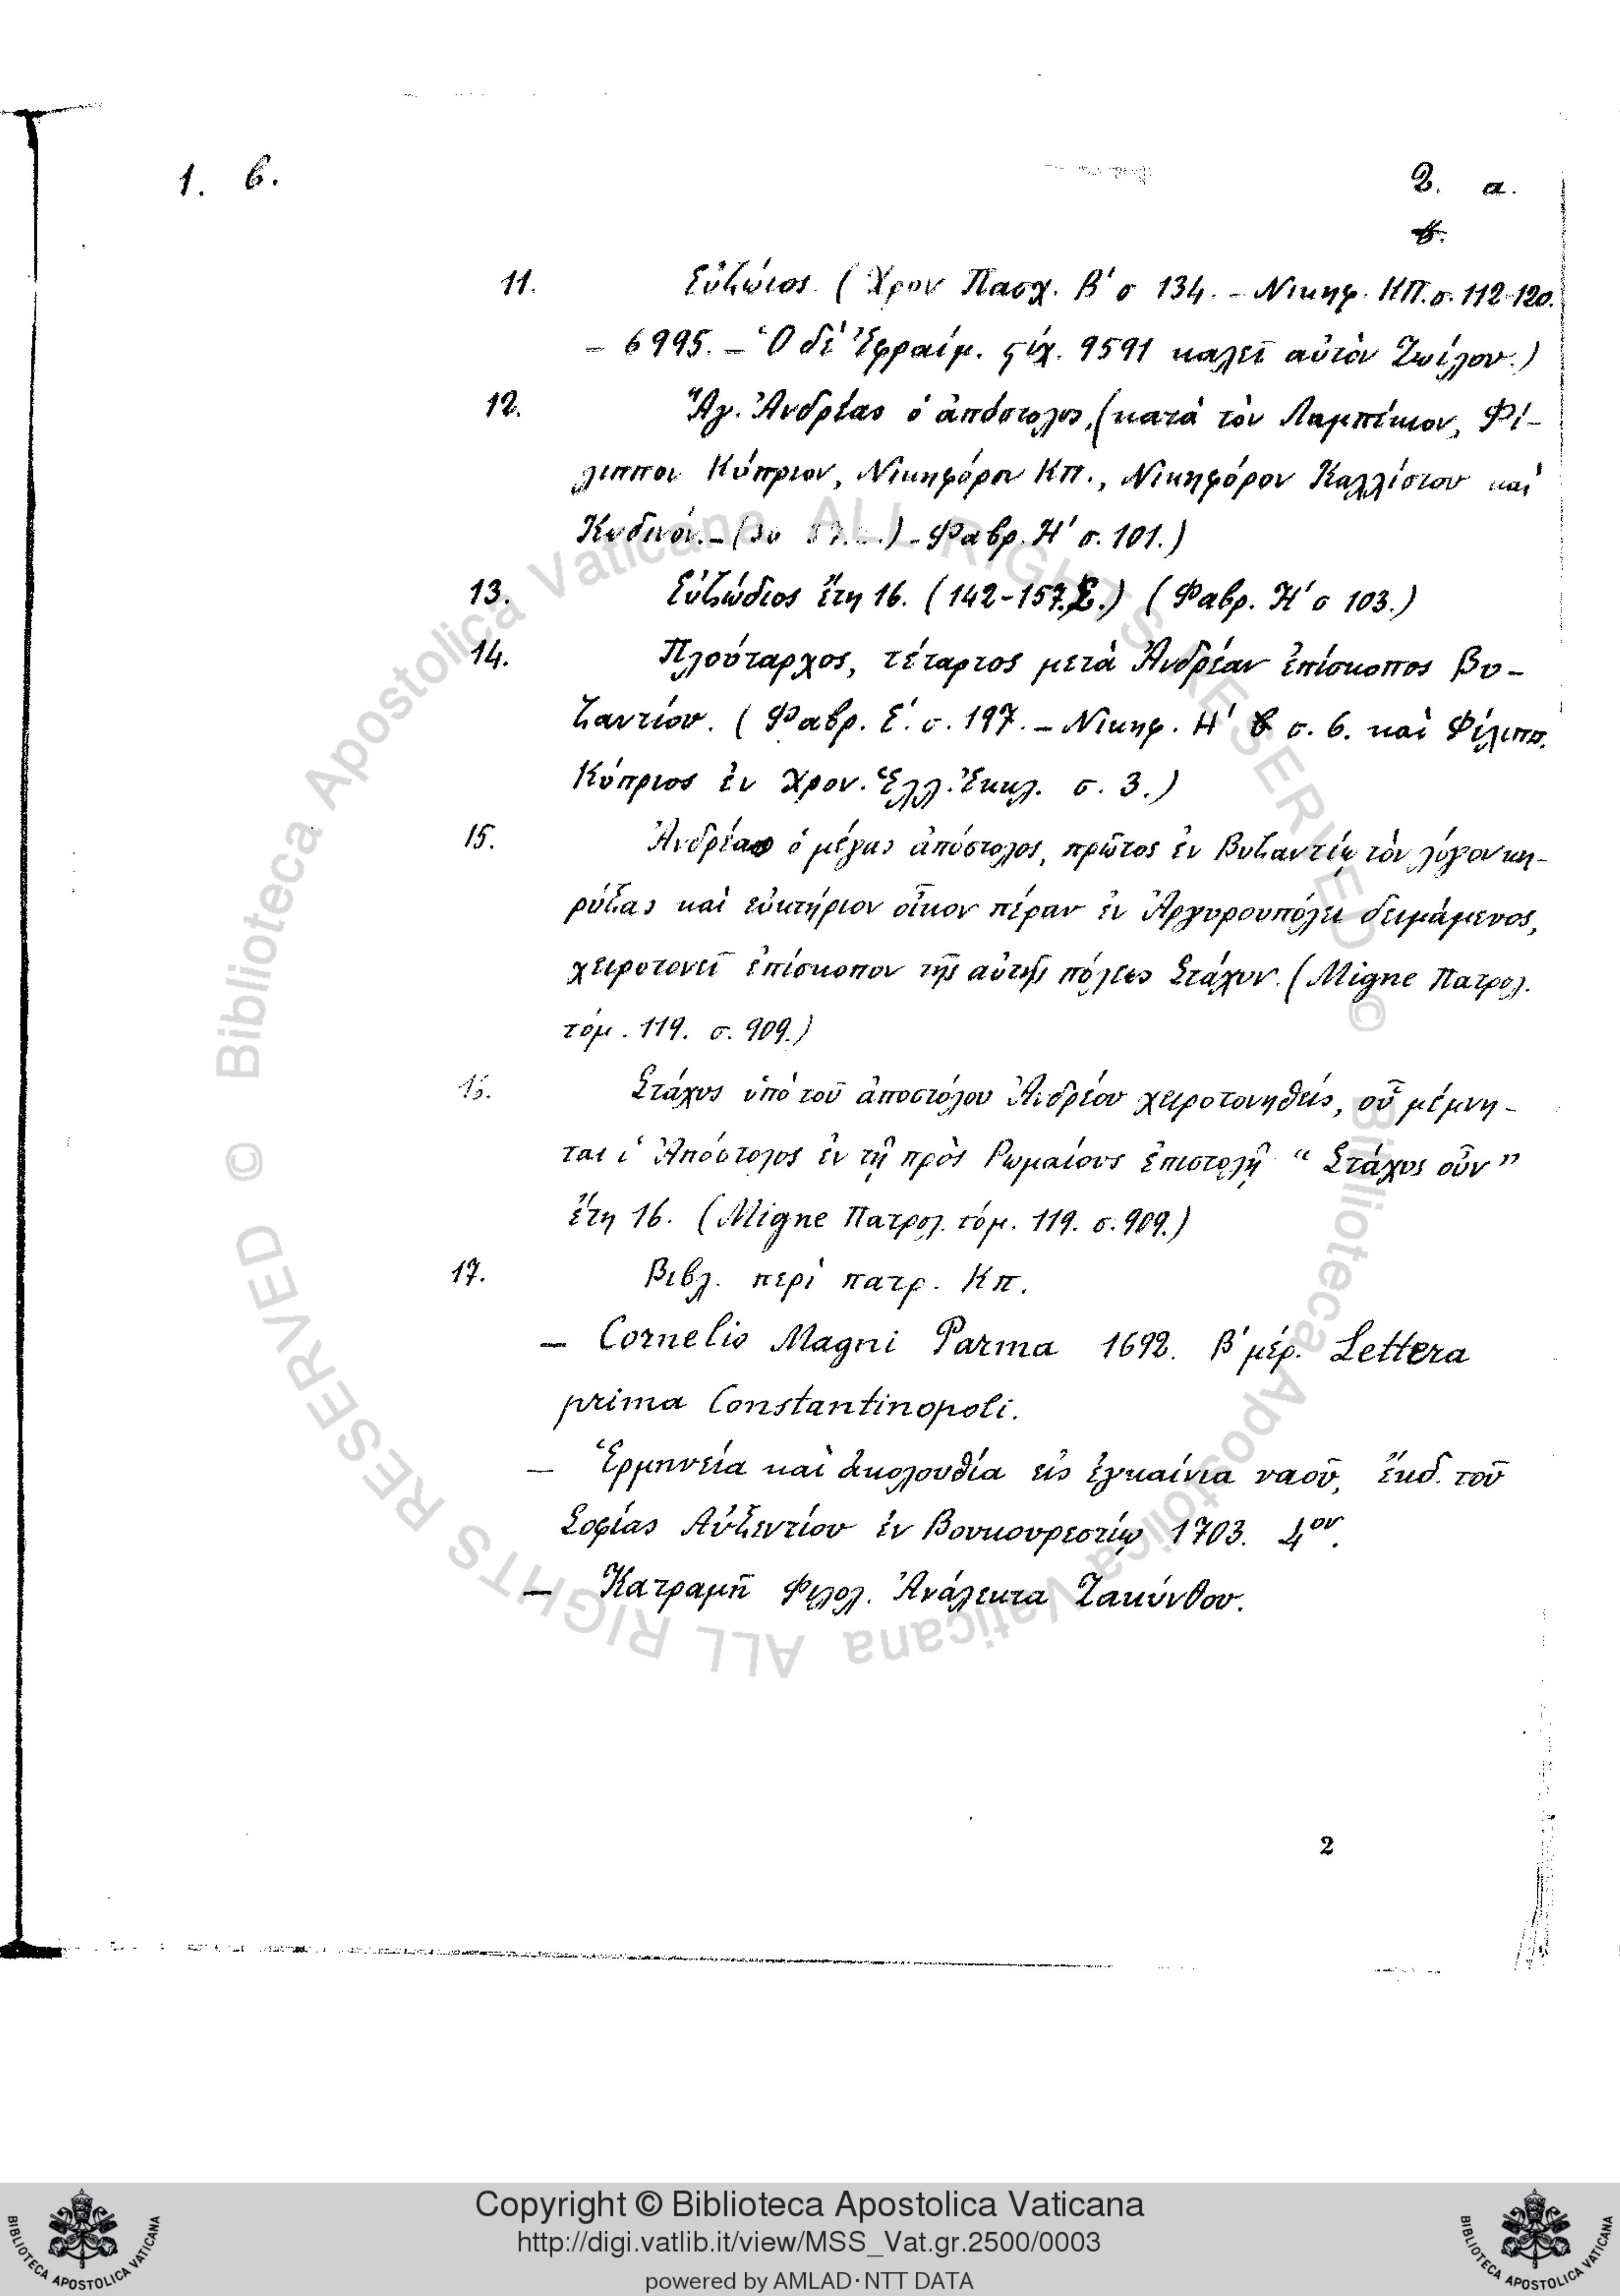 1. β.
2. α.
11. Εὐζώιος. (Χρον Πασχ. Β' σ 134. – Νικηφ. ΚΠ. σ. 112-120.
– 6995. – Ὁ δὲ Ἐφραίμ. ϛίχ. 9591 καλεῖ αὐτὸν Ζωίλον.)
12. Ἅγ. Ἀνδρέας ὁ ἀπόστολος, (κατὰ τὸν Λαμπέκιον, Φί-
λιππον Κύπριον, Νικηφόρον Κπ., Νικηφόρον Καλλίστου καὶ
Κωδινόν. – – Φαβρ. Η' σ. 101.)
13. Εὐζώδιος ἔτη 16. (142-157. Σ.) (Φαβρ. Η' σ 103.)
14. Πλούταρχος, τέταρτος μετὰ Ἀνδρέαν ἐπίσκοπος Βυ-
ζαντίου. (Φαβρ. Ε'. σ. 197. – Νικηφ. Η' σ. 6. καὶ Φίλιππ.
Κύπριος ἐν Χρον. Ἑλλ. Ἐκκλ. σ. 3.)
15. Ἀνδρέας ὁ μέγας ἀπόστολος, πρῶτος ἐν Βυζαντίῳ τὸν λόγον κη-
ρύξας καὶ εὐκτήριον οἶκον πέραν ἐν Ἀργυρουπόλει δειμάμενος,
χειροτονεῖ ἐπίσκοπον τῆς αὐτῆς πόλεως Στάχυν. (Migne Πατρολ.
τόμ. 119. σ. 909.)
16. Στάχυς ὑπὸ τοῦ ἀποστόλου Ἀνδρέου χειροτονηθείς, οὗ μέμνη-
ται ὁ Ἀπόστολος ἐν τῇ πρὸς Ρωμαίους ἐπιστολῇ “Στάχυς οὖν”
ἔτη 16. (Migne Πατρολ. τόμ. 119. σ. 909.)
17. Βιβλ. περὶ πατρ. Κπ.
– Cornelio Magni Parma 1692. Β' μέρ. Lettera
prima Constantinopoli.
– Ἑρμηνεία καὶ ἀκολουθία εἰς ἐγκαίνια ναοῦ, ἔκδ. τοῦ
Σοφίας Αὐξεντίου ἐν Βουκουρεστίῳ 1703. 4ον.
– Κατραμῆ Φιλολ. Ἀνάλεκτα Ζακύνθου.
2
© Biblioteca Apostolica Vaticana ALL RIGHTS RESERVED © Biblioteca Apostolica Vaticana ALL RIGHTS RESERVED
Copyright © Biblioteca Apostolica Vaticana
http://digi.vatlib.it/view/MSS_Vat.gr.2500/0003
powered by AMLAD·NTT DATA
BIBLIOTECA APOSTOLICA VATICANA
BIBLIOTECA APOSTOLICA VATICANA